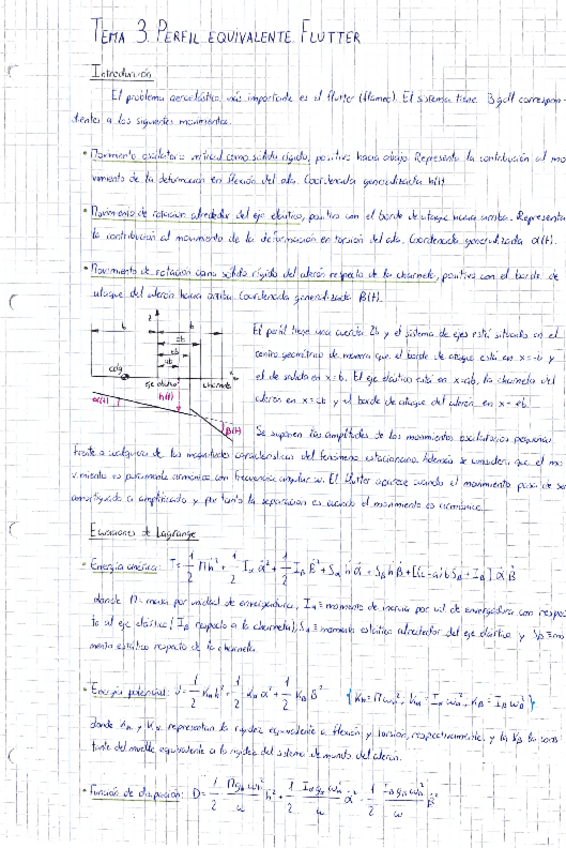 TEMA 3. PERFIL EQUIVALENTE. FLUTTER
Introducción
El problema aeroelástico más importante es el flutter (flameo). El sistema tiene 3 gdl correspon-
dientes a los siguientes movimientos.
• Movimiento oscilatorio vertical como sólido rígido, positivo hacia abajo. Representa la contribución al mo
vimiento de la deformación en flexión del ala. Coordenada generalizada h(t)
• Movimiento de rotación alrededor del eje elástico, positivo con el borde de ataque hacia arriba. Representa
la contribución al movimiento de la deformación en torsión del ala. Coordenada generalizada α(t).
• Movimiento de rotación como sólido rígido del alerón respecto de la charnela, positivo con el borde de
ataque del alerón hacia arriba. Coordenada generalizada β(t).
z
b b
cb
eb
ab
x
cdg
eje elástico charnela
α(t) h(t) β(t)
El perfil tiene una cuerda 2b y el sistema de ejes está situado en el
centro geométrico de manera que el borde de ataque está en x=-b y
el de salida en x=b. El eje elástico está en x=ab, la charnela del
alerón en x=cb y el borde de ataque del alerón en x=eb.
Se suponen las amplitudes de los movimientos oscilatorios pequeñas
frente a cualquiera de las magnitudes características del fenómeno estacionario. Además se considera que el mo
vimiento es puramente armónico con frecuencia angular ω. El flutter aparece cuando el movimiento pasa de ser
amortiguado a amplificado y por tanto la separación es cuando el movimiento es armónico.
Ecuaciones de Lagrange
• Energía cinética: T = 1/2 M ḣ² + 1/2 Iα α̇² + 1/2 Iβ β̇² + Sα ḣ α̇ + Sβ ḣ β̇ + [(c-a) b Sβ + Iβ] α̇ β̇
donde M = masa por unidad de envergadura, Iα ≡ momento de inercia por ud de envergadura con respec
to al eje elástico (Iβ respecto a la charnela), Sα ≡ momento estático alrededor del eje elástico y Sβ ≡ mo
mento estático respecto de la charnela.
• Energía potencial: U = 1/2 Kh h² + 1/2 Kα α² + 1/2 Kβ β² {Kh = M ωh², Kα = Iα ωα², Kβ = Iβ ωβ²}
donde Kh y Kα representan la rigidez equivalente a flexión y torsión, respectivamente, y la Kβ la cons
tante del muelle equivalente a la rigidez del sistema de mando del alerón.
• Función de disipación: D = 1/2 M gh ωh²/ω ḣ² + 1/2 Iα gα ωα²/ω α̇² + 1/2 Iβ gβ ωβ²/ω β̇²